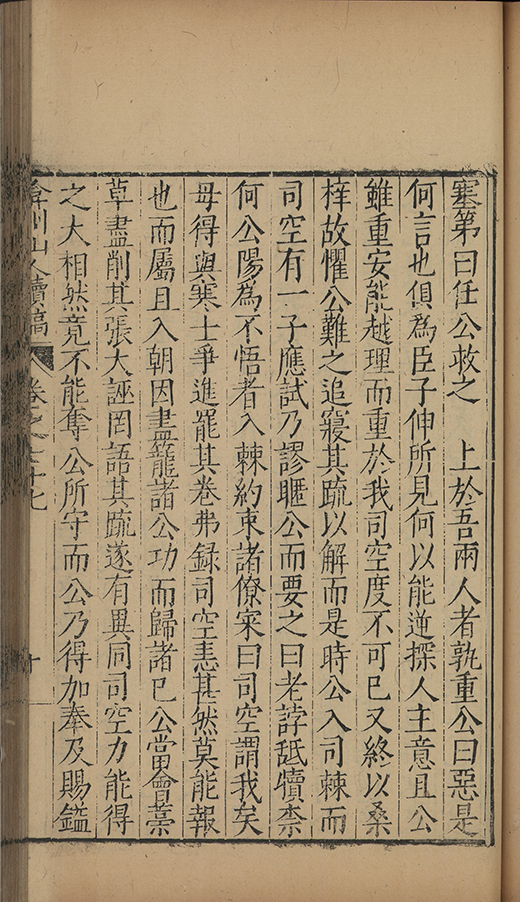 塞第曰任公救之　上於吾兩人者孰重公曰惡是
何言也俱為臣子伸所見何以能逆探人主意且公
雖重安能越理而重於我司空度不可已又終以桑
梓故懼公難之追寢其疏以解而是時公入司棘而
司空有一子應試乃謬暱公而要之曰老誖舐犢柰
何公陽為不悟者入棘約束諸僚寀曰司空謂我矣
毋得與寒士爭進罷其卷弗録司空恚甚然莫能報
也而屬且入朝因盡籠諸公功而歸諸己公當會藁
草盡削其張大誣罔語其疏遂有異同司空力能得
之大相然竟不能奪公所守而公乃得加奉及賜鎰
弇州山人續稿 卷之 十七 十